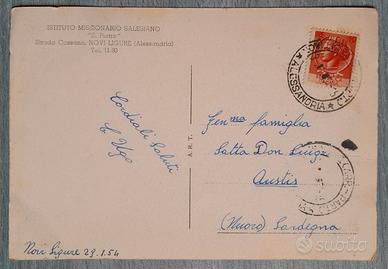 ISTITUTO MISSIONARIO SALESIANO
"G. Pastor"
Strada Cassano, NOVI LIGURE (Alessandria)
Tel. 11-30
★ ALESSANDRIA ★
Cordiali Saluti
C. Ugo
A. R. T.
Gen.ma famiglia
Satta Don Luigi
Austis
(Nuoro) Sardegna
Novi Ligure 29.1.54
subito